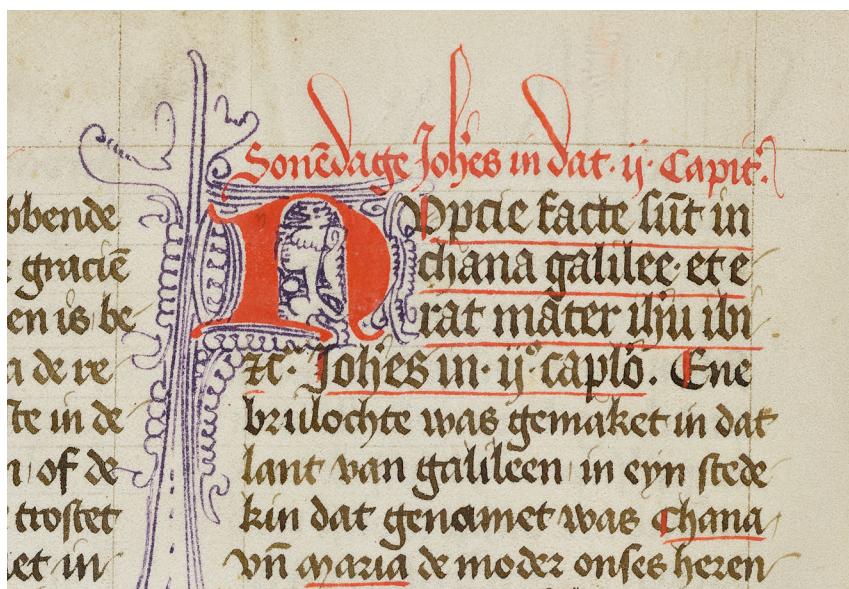 bbende
graciē
en is be
a de re
ste in de
n of de
trostet
et in
Sonēdage Joh̄es in dat · ij · Capit̉.
NVpcie facte sūt in
chana galilee · et e
rat mater ih̄u ibi
⁊c · Joh̄es in · ij° caplō . Ene
brulochte was gemaket in dat
lant van galileen in eyn stede
kin dat genamet was Chana
vn̄ Maria de moder onses heren